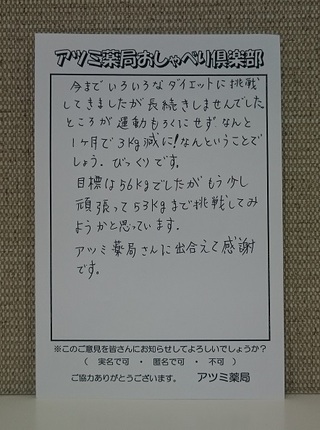 アツミ薬局おしゃべり倶楽部
今までいろいろなダイエットに挑戦
してきましたが長続きしませんでした
ところが運動もろくにせずなんと
1ヶ月で3Kg減に!なんということで
しょう。びっくりです。
目標は56Kgでしたがもう少し
頑張って53Kgまで挑戦してみ
ようかと思っています。
アツミ薬局さんに出合えて感謝
です。
※このご意見を皆さんにお知らせしてよろしいでしょうか?
( 実名で可 ・ 匿名で可 ・ 不可 )
ご協力ありがとうございます。 アツミ薬局